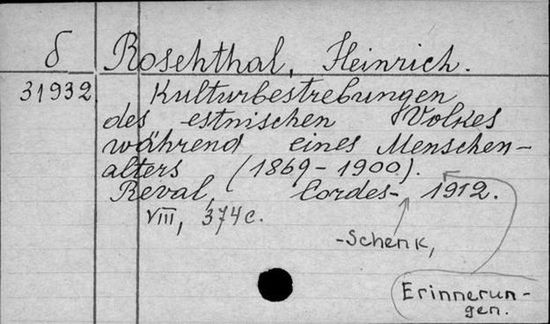 δ Rosehthal, Heinrich.
31932 Kulturbestrebungen
des estnischen Volkes
während eines Menschen-
alters (1869-1900).
Reval, Cordes-, 1912.
VIII, 374c.
-Schenk,
Erinnerun-
gen.